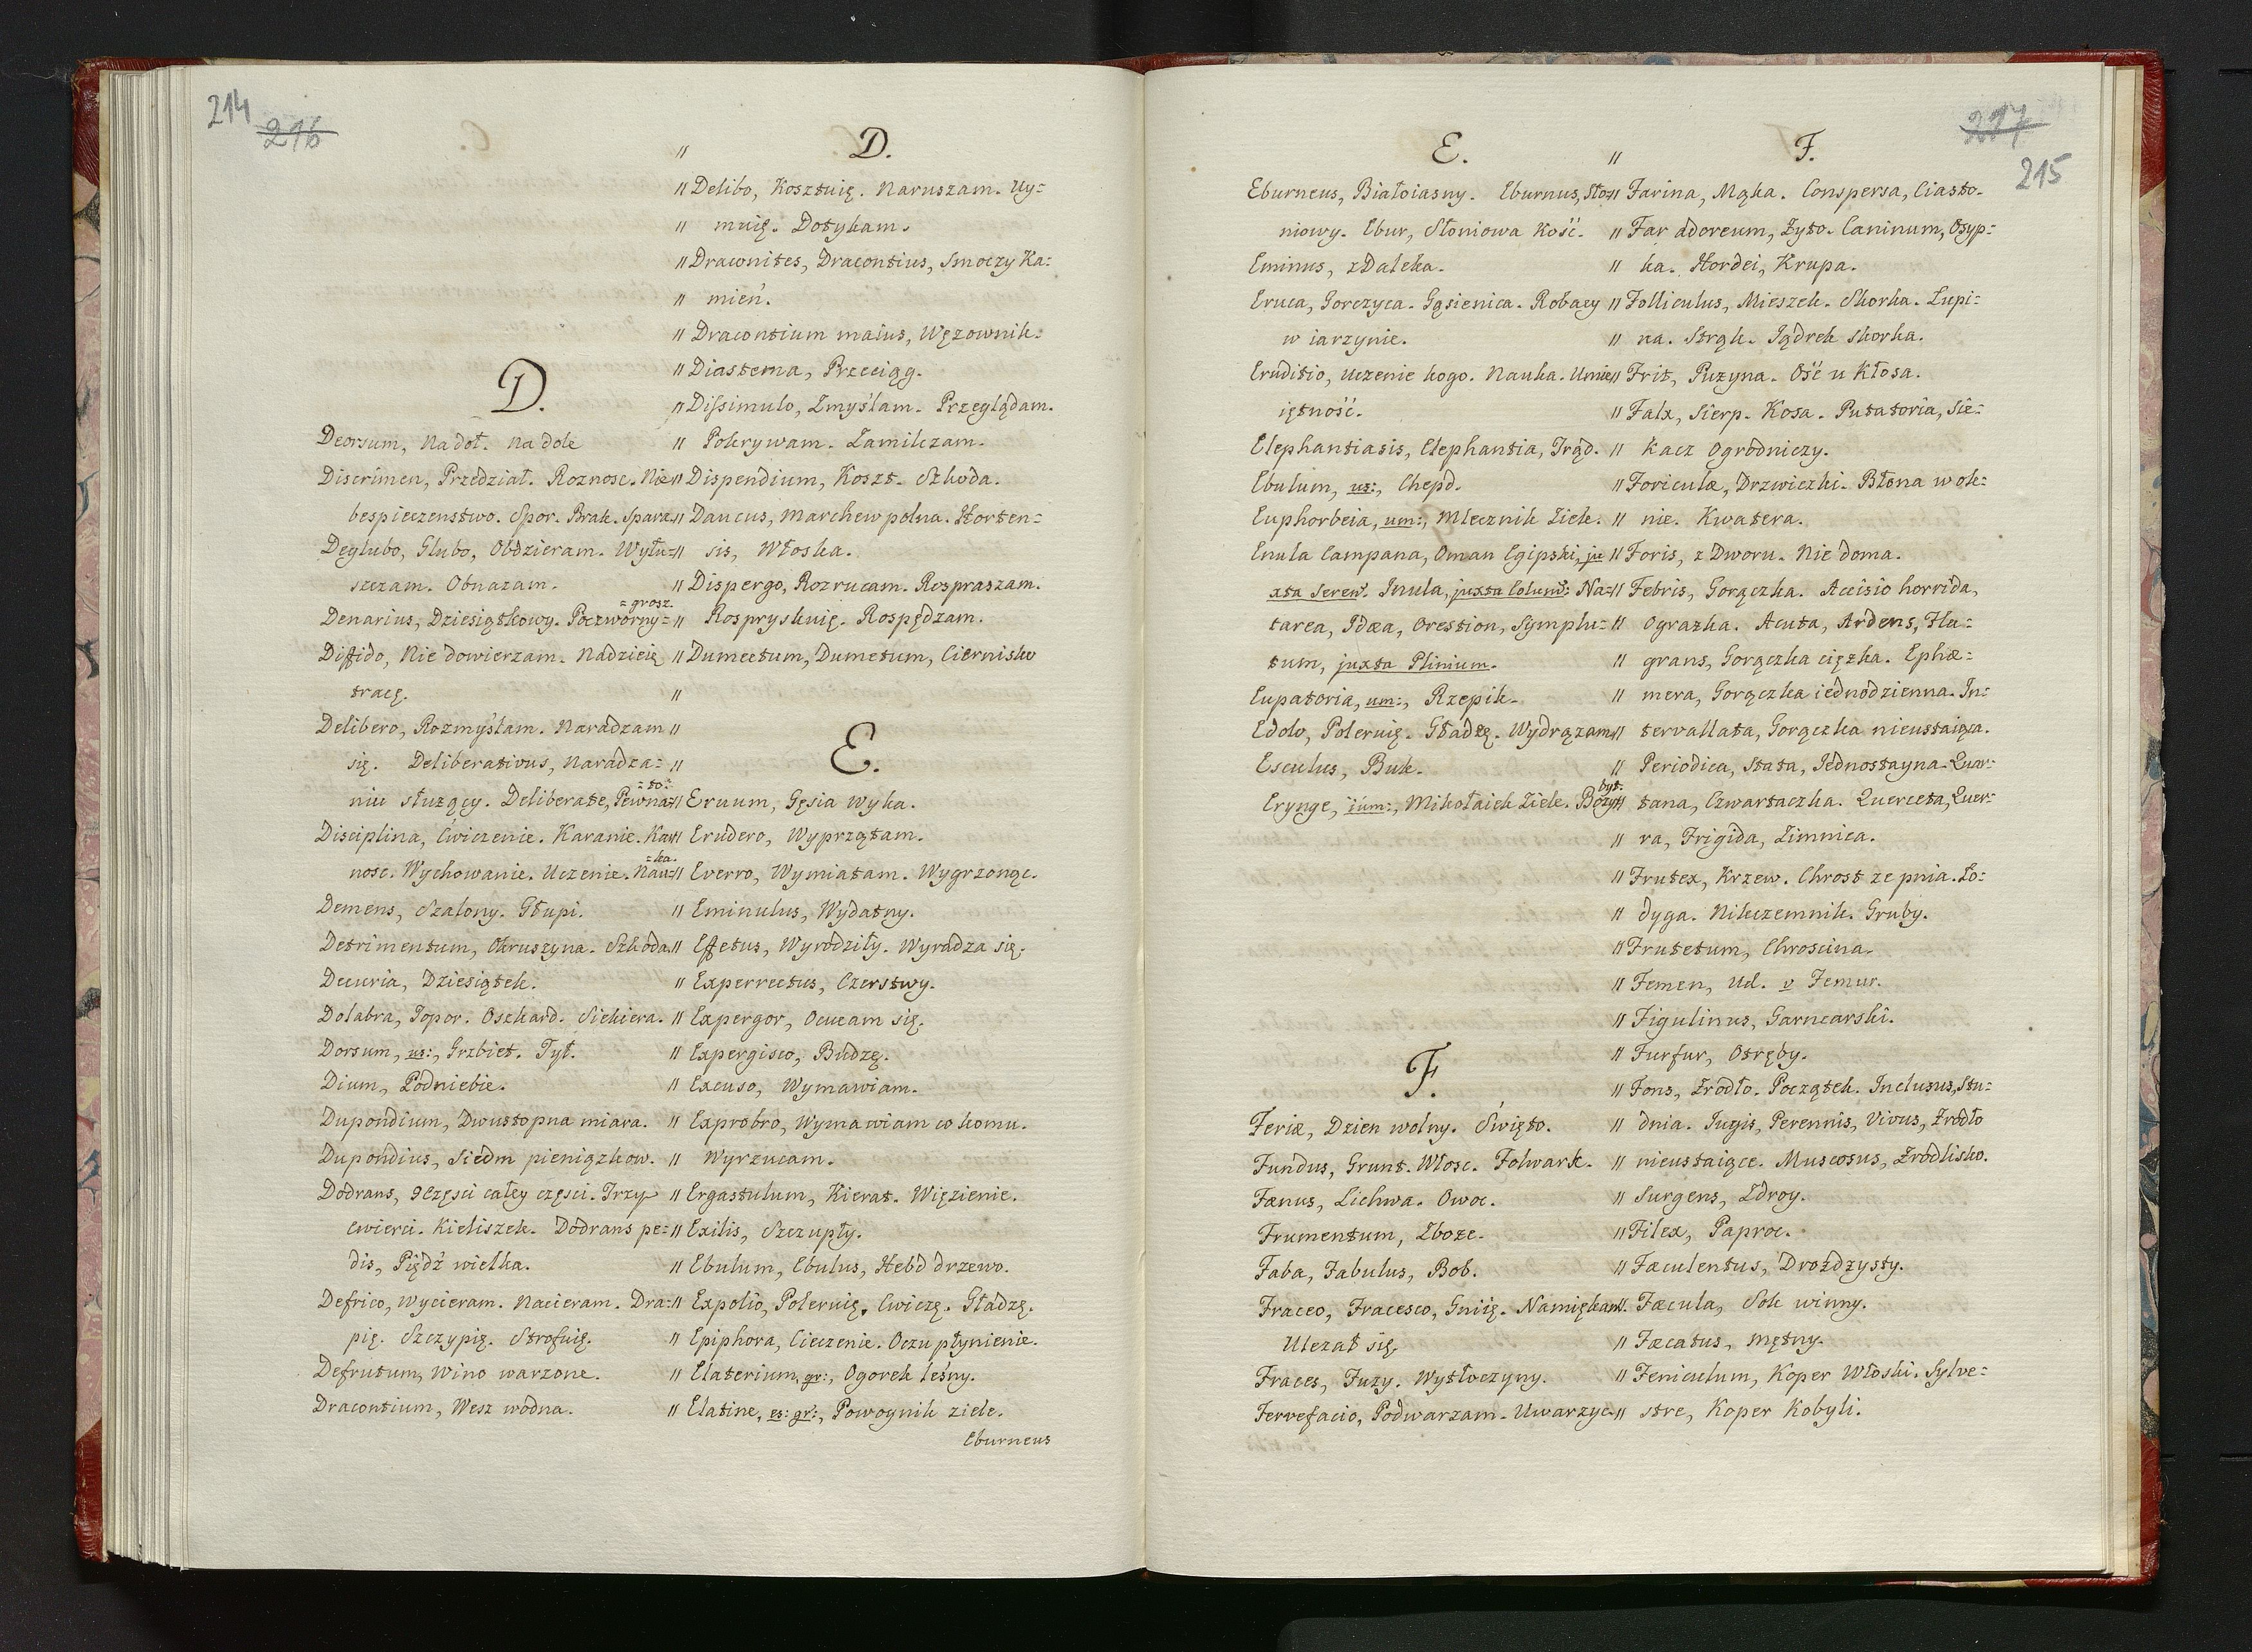 214
216
D.
Deorsum, na doł. na dole
Discrimen, Przedział. Roznosc. Nie=
bespieczenstwo. Spor. Brak. Spara.
Deglubo, Glubo, Obdzieram. Wyłu=
szczam. Obnazam.
= grosz.
Denarius, Dziesiątkowy. Poczworny=
Diffido, Nie dowierzam. Nadzieię
tracę.
Delibero, Rozmyślam. Naradzam
się. Deliberativus, naradza=
= to:
niu słuzący. Deliberate, Pewna=
Disciplina, Ćwiczenie. Karanie. Kar=
= ka.
nosc. Wychowanie. Uczenie. Nau=
Demens, Szalony. Głupi.
Detrimentum, Okruszyna. Szkoda.
Decuria, Dziesiątek.
Dolabra, Topor. Oskard. Siekiera.
Dorsum, us:, Grzbiet. Tył.
Dium, Podniebie.
Dupondium, Dwustopna miara.
Dupondius, Siedm pieniązkow.
Dodrans, 9 Częsci całey częsci. Trzy
cwierci. Kieliszek. Dodrans pe=
dis, Piędź wielka.
Defrico, wycieram. Nacieram. Dra=
pię. Szczypię. Strofuię.
Defrutum, Wino warzone.
Dracontium, Wesz wodna.
D.
Delibo, Kosztuię. Naruszam. Uy=
muię. Dotykam.
Draconites, Dracontius, Smoczy Ka=
mień.
Dracontium maius, Wężownik.
Diastema, Przeciąg.
Dissimulo, Zmyślam. Przeglądam.
Pokrywam. Zamilczam.
Dispendium, Koszt. Szkoda.
Daucus, Marchew polna. Horten=
sis, Włoska.
Dispergo, Rozrucam. Rospraszam.
Rospryskuię. Rospędzam.
Dumectum, Dumetum, Ciernisko
E.
Eruum, Gęsia wyka.
Erudero, Wyprzątam.
Everro, Wymiatam. Wygrzonąc.
Eminulus, Wydatny.
Effetus, Wyrodziły. Wyradza się.
Experrectus, Czerstwy.
Expergor, Ocucam się.
Expergisco, Budzę.
Excuso, Wymawiam.
Exprobro, Wymawiam co komu.
Wyrzucam.
Ergastulum, Kierat. Więzienie.
Exilis, Szczupły.
Ebulum, Ebulus, Hebd drzewo.
Expolio, Poleruię, Cwiczę. Gładzę.
Epiphora, Cieczenie. Oczu płynienie.
Elaterium, gr:, Ogorek leśny.
Elatine, es: gr:, Powoynik ziele.
Eburneus
217
215
E.
Eburneus, Białoiasny. Eburnus, Sło=
niowy. Ebur, Słoniowa Kość.
Eminus, z Daleka.
Eruca, Gorczyca. Gąsienica. Robacy
w iarzynie.
Eruditio, uczenie kogo. Nauka. Umie=
iętność.
Elephantiasis, Elephantia, Trąd.
Ebulum, us:, Chepd.
Euphorbeia, um:, Mlecznik Ziele.
Enula Campana, Oman Egipski, ju
xta Seren: Inula, juxta Colum: Na=
tarea, Idæa, Orestion, Symphu=
tum, juxta Plinium.
Eupatoria, um:, Rzepik.
Edolo, Poleruię. Gładzę. Wydrązam.
Esculus, Buk.
byt.
Erynge, ium:, Mikołaiek Ziele. Bozy=
F.
Feriæ, Dzien wolny. Święto.
Fundus, Grunt. Włosc. Folwark.
Fænus, Lichwa. Owoc.
Frumentum, Zboze.
Faba, Fabulus, Bob.
Fraceo, Fracesco, Gniię. Namiękam.
Ulezał się.
Fraces, Fuzy. Wytłoczyny.
Fervefacio, Podwarzam. Uwarzyc.
F.
Farina, Mąka. Conspersa, Ciasto.
Far adoreum, Zyto. Caninum, Osyp=
ka. Hordei, Krupa.
Folliculus, Mieszek. Skorka. Lupi=
na. Strąk. Jądrek skorka.
Frit, Puzyna. Ość u Kłosa.
Falx, Sierp. Kosa. Putatoria, Sie=
kacz Ogrodniczy.
Foriculæ, Drzwiczki. Błona w ok=
nie. Kwatera.
Foris, z Dworu. Nie doma.
Febris, Gorączka. Accisio horrida,
Ograzka. Acuta, Ardens, Fla=
grans, Gorączka cięzka. Ephæ=
mera, Gorączka iednodzienna. In=
tervallata, Gorączka nieustaiąca.
Periodica, Stata, Jednostayna. Quar=
tana, Czwartaczka. Querceta, Quer=
ra, Frigida, Zimnica.
Frutex, Krzew. Chrost ze pnia. Ło=
dyga. Nikczemnik. Gruby.
Frutetum, Chroscina.
Femen, Ud. v Femur.
Figulinus, Garncarski.
Furfur, Otręby.
Fons, Źrodło. Początek. Inclusus, Stu=
dnia. Iugis, Perennis, Vivus, Źrodło
nieustaiące. Muscosus, Źrodlisko.
Surgens, Zdroy.
Filex, Paproc.
Fæculentus, Drożdzysty.
Fæcula, Sok winny.
Fæcatus, Mętny.
Feniculum, Koper Włoski. Sylve=
stre, Koper Kobyli.